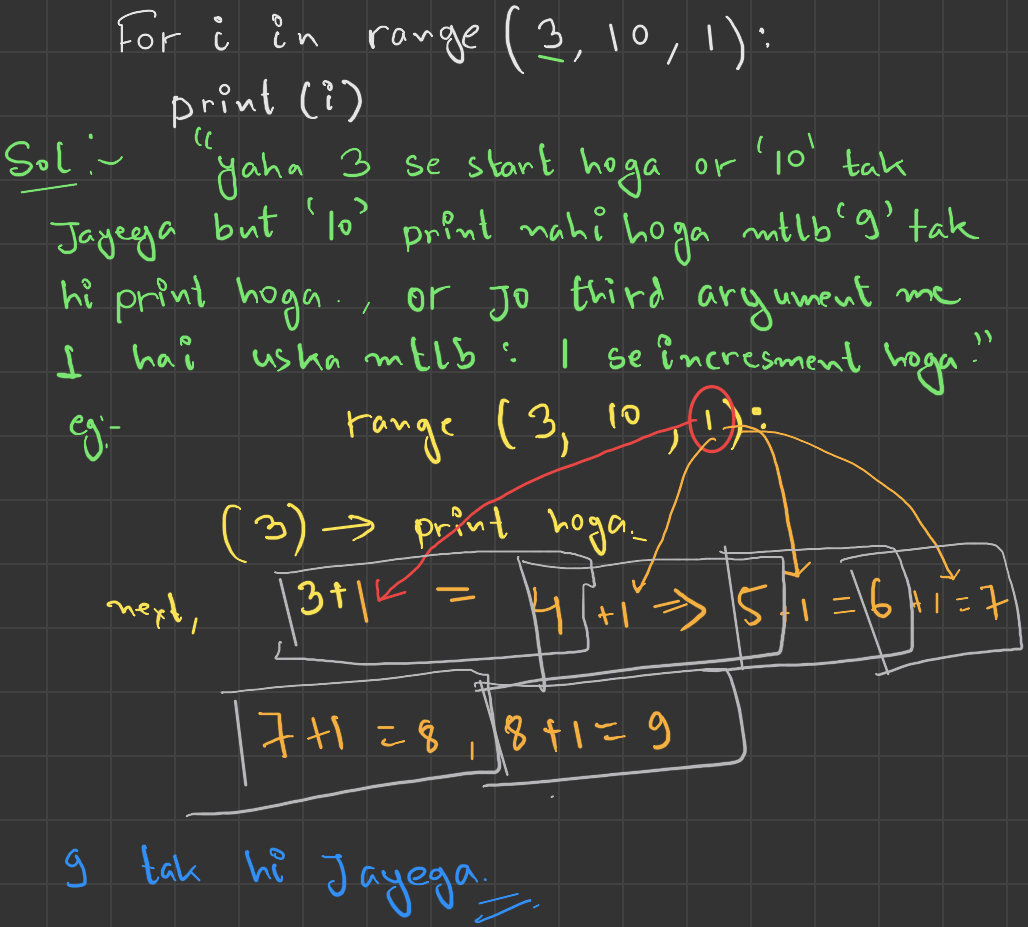 For i in range (3, 10, 1):
print (i)
Sol:- "yaha 3 se start hoga or '10' tak
Jayeega but '10' print nahi hoga mtlb '9' tak
hi print hoga., or Jo third argument me
1 hai uska mtlb : 1 se incresment hoga."
eg:- range (3, 10, 1):
(3) → print hoga.
next, 3+1 = 4 +1 ⇒ 5 +1 = 6 +1 = 7
7+1 = 8, 8+1 = 9
9 tak hi Jayega.